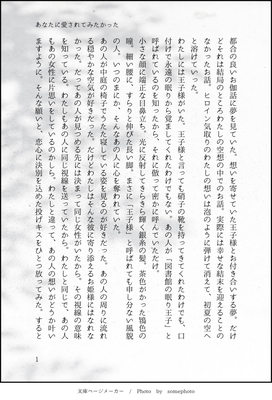 あなたに愛されてみたかった
都合の良いお伽話に夢を見ていた。想いを寄せていた王子様とお付き合いする夢。だけ
どそれは結局のところわたしの空想の中でのお話。実際には幸せな結末を迎えることの
なかったお話。ヒロイン気取りのわたしの想いは泡のように弾けて消えて、初夏の空へ
と溶けていった。
わたしには王子様がいた。王子様と言っても硝子の靴を持ってきてくれたわけでも、口
付けで永遠の眠りから覚ましてくれたわけでもない。あの人が「図書館の眠り王子」と
呼ばれているのを知ったから、それに倣って密かに呼んでいただけ。
小さな顔に端正な目鼻立ち。光に反射してきらきら輝く銀糸の髪。茶色がかった鳶色の
瞳。細い腰に、すらりと伸びた長い脚。まさに「王子様」と呼ばれても申し分ない風貌
の人。いつのまにか、そんなあの人に心を奪われていた。
あの人が中庭の椅子でうたた寝している姿を見るのが好きだった。あの人の周りに流れ
る穏やかな空気が好きだった。だけどわたしはそんな彼に寄り添えるお姫様にはなれな
かった。だってあの人が見つめる先には決まって同じ女性がいたから。その視線の意味
を知っている。わたしもあの人に同じ視線を送っていたから。わたしと同じで、あの人
もあの女性に片思いをしているのかしら。わたしと違って、あの人の想いがどうか叶い
ますように。そんな願いと、恋心に決別を込めた投げキスをひとつ放ってみた。すると
1
文庫ページメーカー / Photo by somephoto